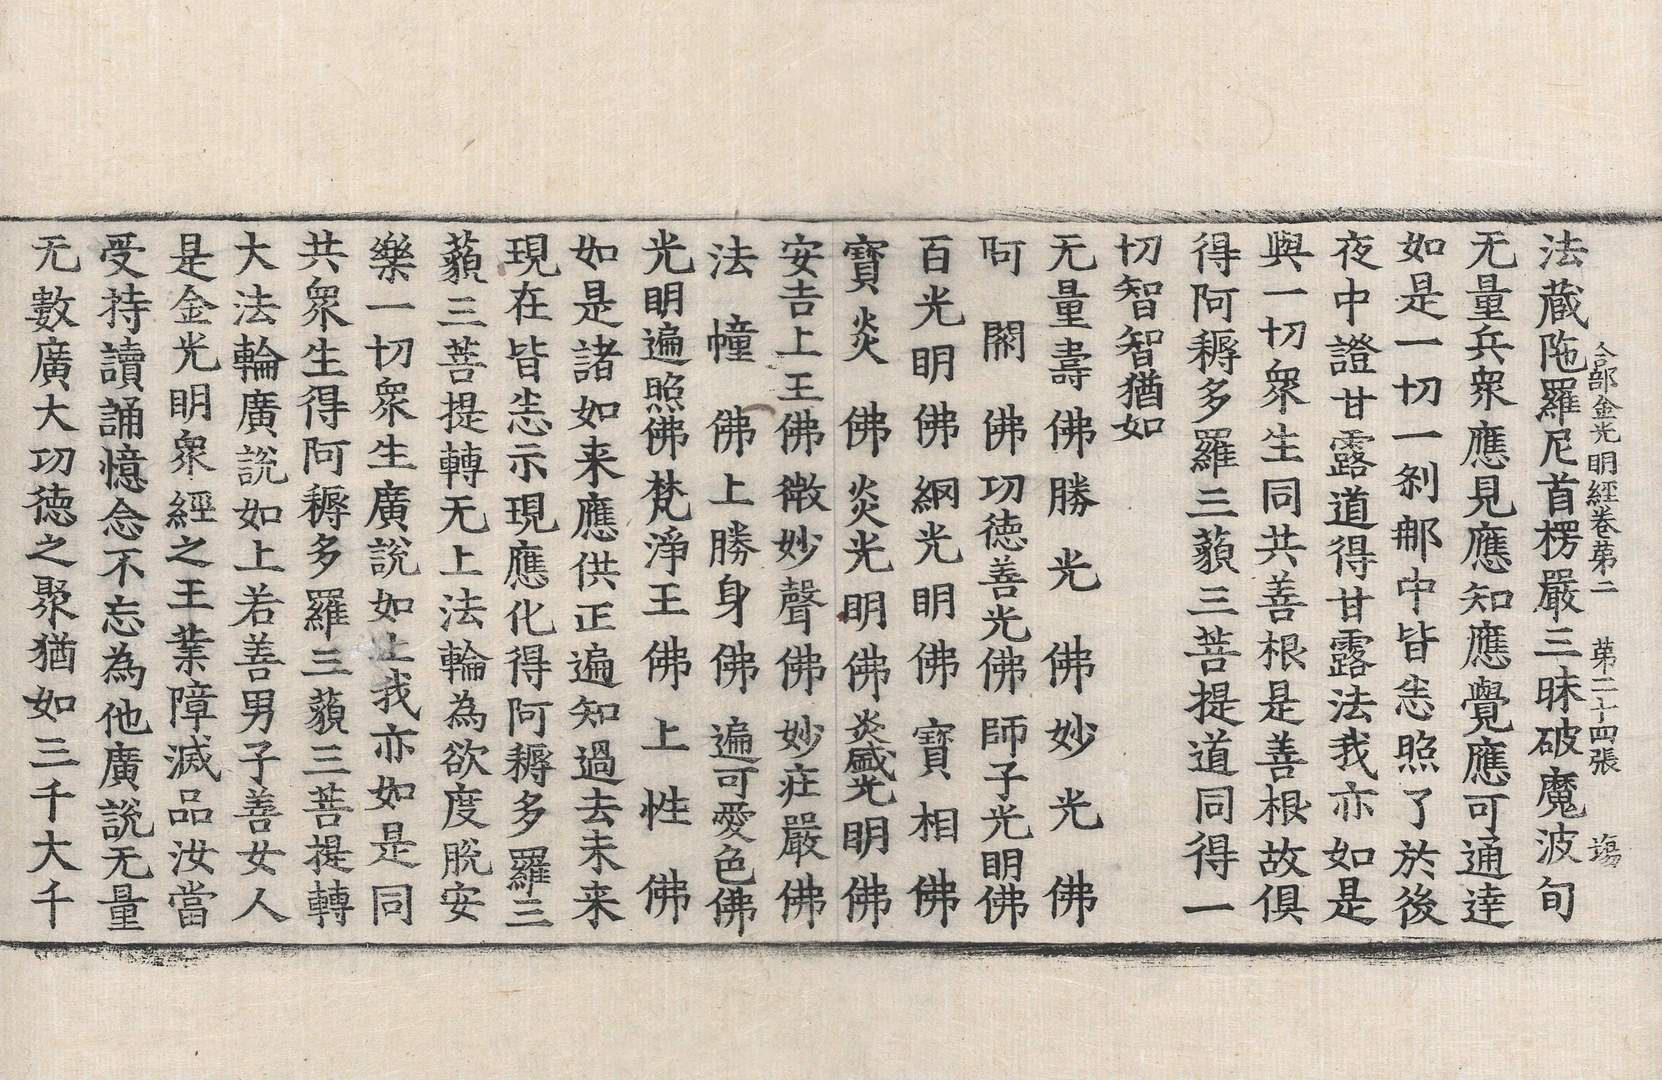 合部金光明經卷苐二　苐二十四張　塲
法蔵陁羅尼首楞嚴三昧破魔波旬
无量兵衆應見應知應覺應可通達
如是一切一刹𨙻中皆悉照了於後
夜中證甘露道得甘露法我亦如是
與一切衆生同共善根是善根故俱
得阿耨多羅三藐三菩提道同得一
切智智猶如
无量壽佛勝光佛妙光佛
阿閦佛功德善光佛師子光明佛
百光明佛網光明佛寶相佛
寶炎佛炎光明佛炎盛光明佛
安吉上王佛微妙聲佛妙莊嚴佛
法幢佛上勝身佛遍可愛色佛
光明遍照佛梵淨王佛上性佛
如是諸如来應供正遍知過去未来
現在皆悉示現應化得阿耨多羅三
藐三菩提轉无上法輪為欲度脫安
樂一切衆生廣說如上我亦如是同
共衆生得阿耨多羅三藐三菩提轉
大法輪廣說如上若善男子善女人
是金光明衆經之王業障滅品汝當
受持讀誦憶念不忘為他廣說无量
无數廣大功德之聚猶如三千大千